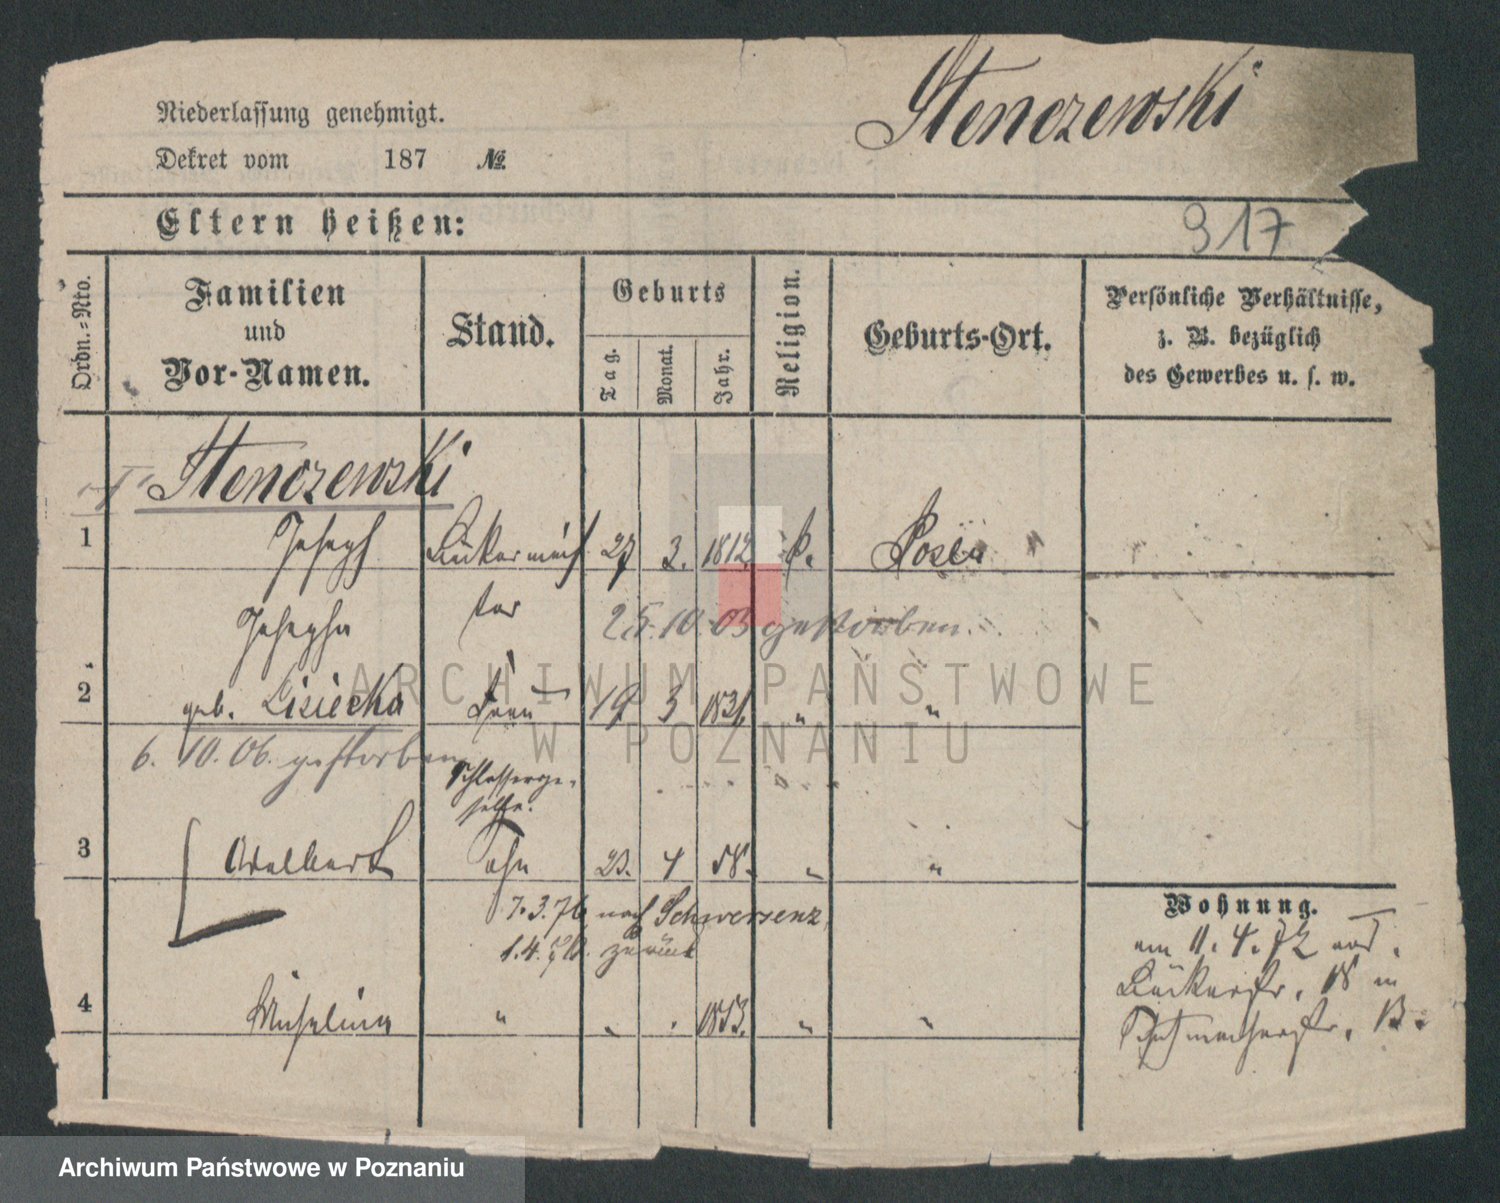 Stenczewski
Niederlassung genehmigt.
Dekret vom 187 №
Eltern heißen:
917
Ordn.=Nro.
Familien
und
Vor-Namen.
Stand.
Geburts
Tag.
Monat.
Jahr.
Religion.
Geburts-Ort.
Persönliche Verhältnisse,
z. B. bezüglich
des Gewerbes u. s. w.
Stenczewski
1 Joseph 27 3. 1812 k. Posen
Josepha
25. 10. 03 gestorben.
2 geb. Lisiecka Frau 19 3 " "
6. 10. 06. gestorben
Schlosserge-
selle.
3 Adalbert Sohn 23. 4 58. " "
7. 3. 76 nach Schwersenz
1. 4. zurück
4 " " 1853. " "
Wohnung.
am 11. 4. 72 von
Bäckerstr. 18 in
Schuhmacherstr. 13.
ARCHIWUM PAŃSTWOWE
W POZNANIU
Archiwum Państwowe w Poznaniu